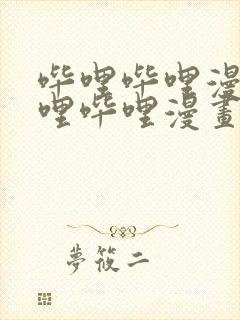 哔哩哔哩漫
哩哔哩漫畫
夢筱二